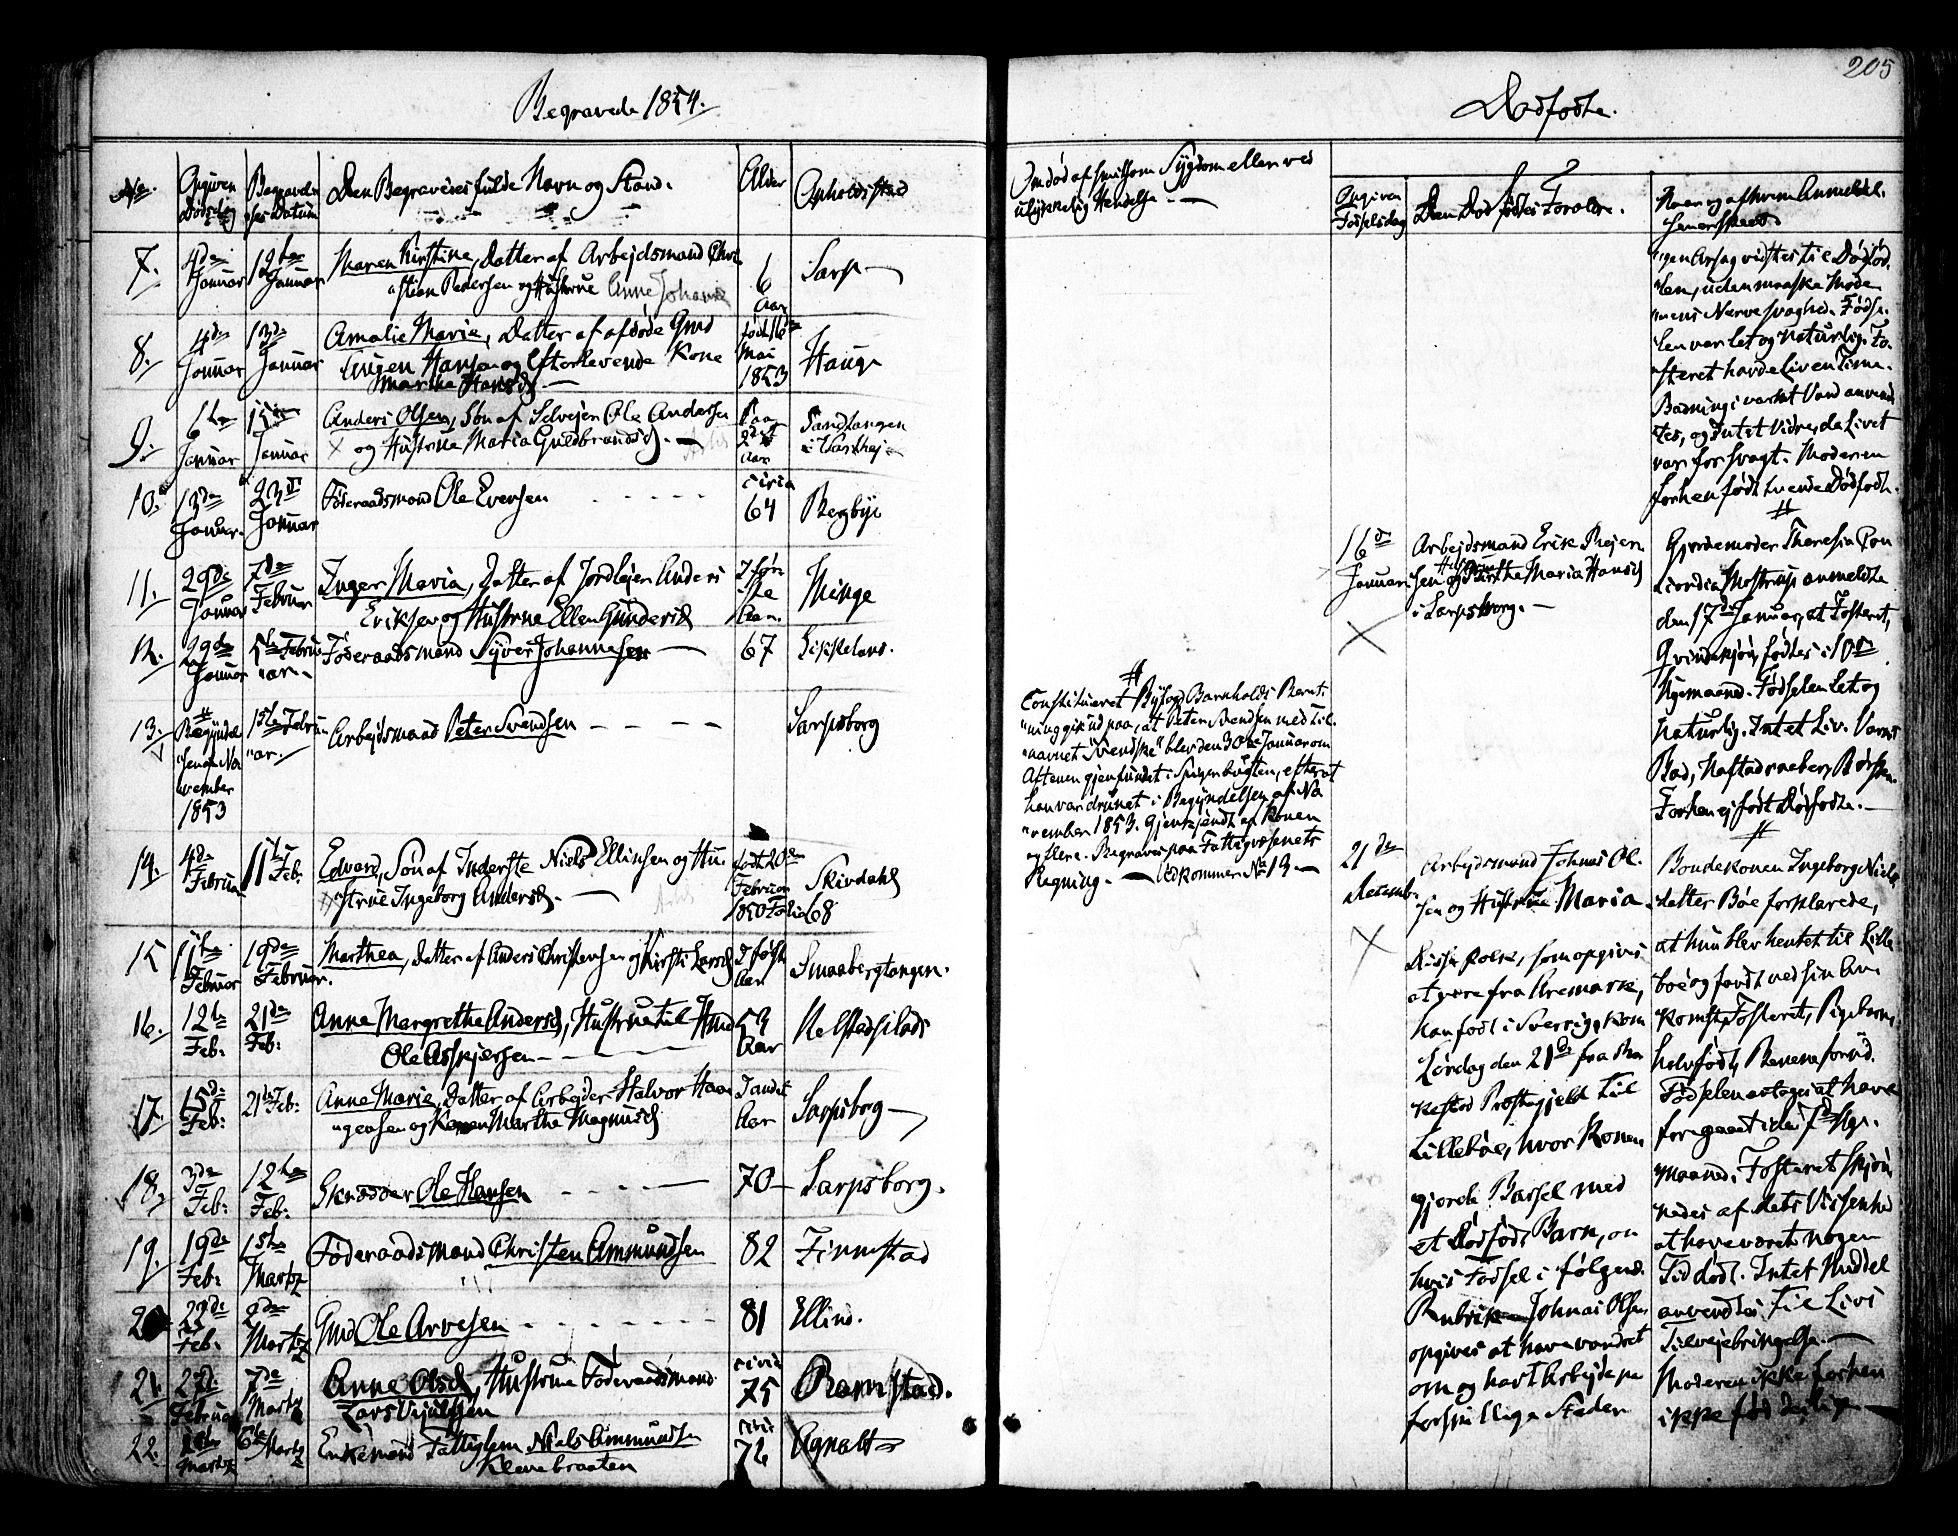 205
Begravede 1854.
Dødfødte.
No.
Opgiven
Dødsdag
Begravel-
ses Datum
Den Begravedes fulde Navn og Stand.
Alder
Opholdssted
Om død af smitsom Sygdom eller ved
ulykkelig Hendelse
Opgiven
Fødselsdag
Den Dødfødtes Forældre.
Naar og af hvem Anmeldel-
sen er skeed
7.
4de
Januar
12te
Januar
Maren Kirstine, Datter af Arbejdsmand Chri-
stian Pedersen og Hustrue Anne Johanne
6
Aar
Sarp
8.
4de
Januar
13de
Januar
Amalie Marie, Datter af afdøde Gmd
Hansen og Efterlevende Kone
Marthe Hansd.
født 16de
Mai
1853
Hauge
9.
6te
Januar
15de
Januar
Anders Olsen, Søn af Selvejer Ole Andersen
og Hustrue Maria Guldbrandsd.
Aar
Sandtangen
i Varthej
10.
13de
Januar.
23de
Januar
Føderaadsmand Ole Evensen
circa
64
Bergbye
11.
29de
Januar
7de
Februar
Inger Maria, Datter af Jordlejer Anders
Eriksen og Hustrue Ellen Gundersd
I før-
ste
Aar.
Minge
12.
29de
Januar
5te Febru-
ar
Føderaadsmand Syver Johannesen
67
13.
Begyndel-
sen af No-
vember
1853
15te Febru-
ar.
Arbejdsmand Peter Svendsen
Sarpsborg
Constitueret Byfoged Barnholdts Beret-
ning gik ud paa, at Peter Svendsen med Til-
navnet "Svendske" blev den 30te Januar om
Aftenen gjenfundet i Spigerbugten, efterat
han var druknet i Begyndelsen af No-
vember 1853. Gjenkjendt af Konen
og flere. Begraves paa Fattigvæsenets
Regning. Vedkommer No 13
14.
4de
Februar
11te
Feb:
Edvard, Søn af Inderste Niels Ellingsen og Hu-
strue Ingeborg Andersd.
født 20de
Februar
1850 Folio 68
Skivdahl
15
11te
Februar
19de
Februar.
Marthea, Datter af Anders Christensen og Kirsti Larsd
I første
Aar
Smaabergtangen.
16.
12te
Feb:
21de
Feb:
Anne Margrethe Andersd, Hustrue til Hmd
Ole Asbjørsen
53
Aar
17.
15de
Feb:
21de Feb:
Anne Marie, Datter af Arbejder Halvor Haa-
gensen og Konen Marthe Magnusd
I andet
Aar
Sarpsborg
18.
3de
Feb:
12te
Feb:
Skrædder Ole Hansen
70
Sarpsborg.
19.
19de
Feb:
15te
Martz
Føderaadsmand Christen Ammundsen
82
Finnstad
20
22de
Feb.
2de
Martz
Gmd Ole Arvesen
81
Ellind.
21.
22de
Februar
7de
Martz
Anne Olsd, Hustrue Føderaadsmand
Lars
circa
75
Ramstad.
22.
Martz
6te Martz
Enkemand Fattiglem Niels Ammundsen
Klevebraaten
circa
72
Agnalt
ingen Aarsag vidstes til Dødfød-
len, uden maaske Mode-
rens Nervesvaghed. Fødse-
len var let og naturlig. Fo-
steret havde Liv en Time.
Badning i varmt Vand anvend-
tes, og Intet videre, da Livet
var for svagt. Moderen
forhen født tvende Dødfødte.
16de
Januar
Arbejdsmand Erik Mejer-
sen og Hustrue Marthe Maria Hansd
i Sarpsborg.
Gjordemoder Theresia Con-
cordia Mostrup anmeldte
den 17de Januar, at Fosteret,
Qvindekjøn, fødtes i 10de
Nyemaaned. Fødselen let og
naturlig. Intet Liv. Varmt
Bad, Naftadraaber, Børsten.
Forhen ej født Dødfødte.
21de
Decemb.
Arbejdsmand Johnas Ol-
sen og Hustrue Maria
som opgives
at være fra Aremark,
han født i Sverrig, kom
Lørdag den 21de fra Ra-
kestad Prestegjeld til
Lillebøe, hvor Konen
gjorde Barsel med
et Dødfødt Barn, om
hvis Fødsel i følgende
Rubrik. Johnas Olsen
opgives at have vandret
om og havt Arbejde paa
forskjellige Steder
Bondekonen Ingeborg Niels-
datter Bøe forklarede,
at hun blev hentet til Lille-
bøe og fandt ved sin An-
komst Fosteret, Pigebarn,
halvfødt, Benene forud.
Fødselen antoges at have
foregaaet i den 7de Nye-
maaned. Fosteret skjøn-
nedes af dets Vissenhed
at have været nogen
Tid død. Intet Middel
anvendtes til Livs
Tilvejebringelse.
Moderen ikke forhen